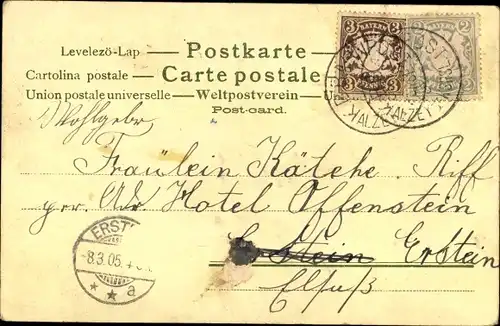 Levelezö-Lap — Postkarte —
Cartolina postale — Carte postale —
Union postale universelle — Weltpostverein — U
Post-card.
3 BAYERN 3
3 3
2
Wohlgebr
Fräulein Kätche Riff
per. Adr Hotel Offenstein
Stein Erstein
Elsaß
ERST
-8.3.05.
a